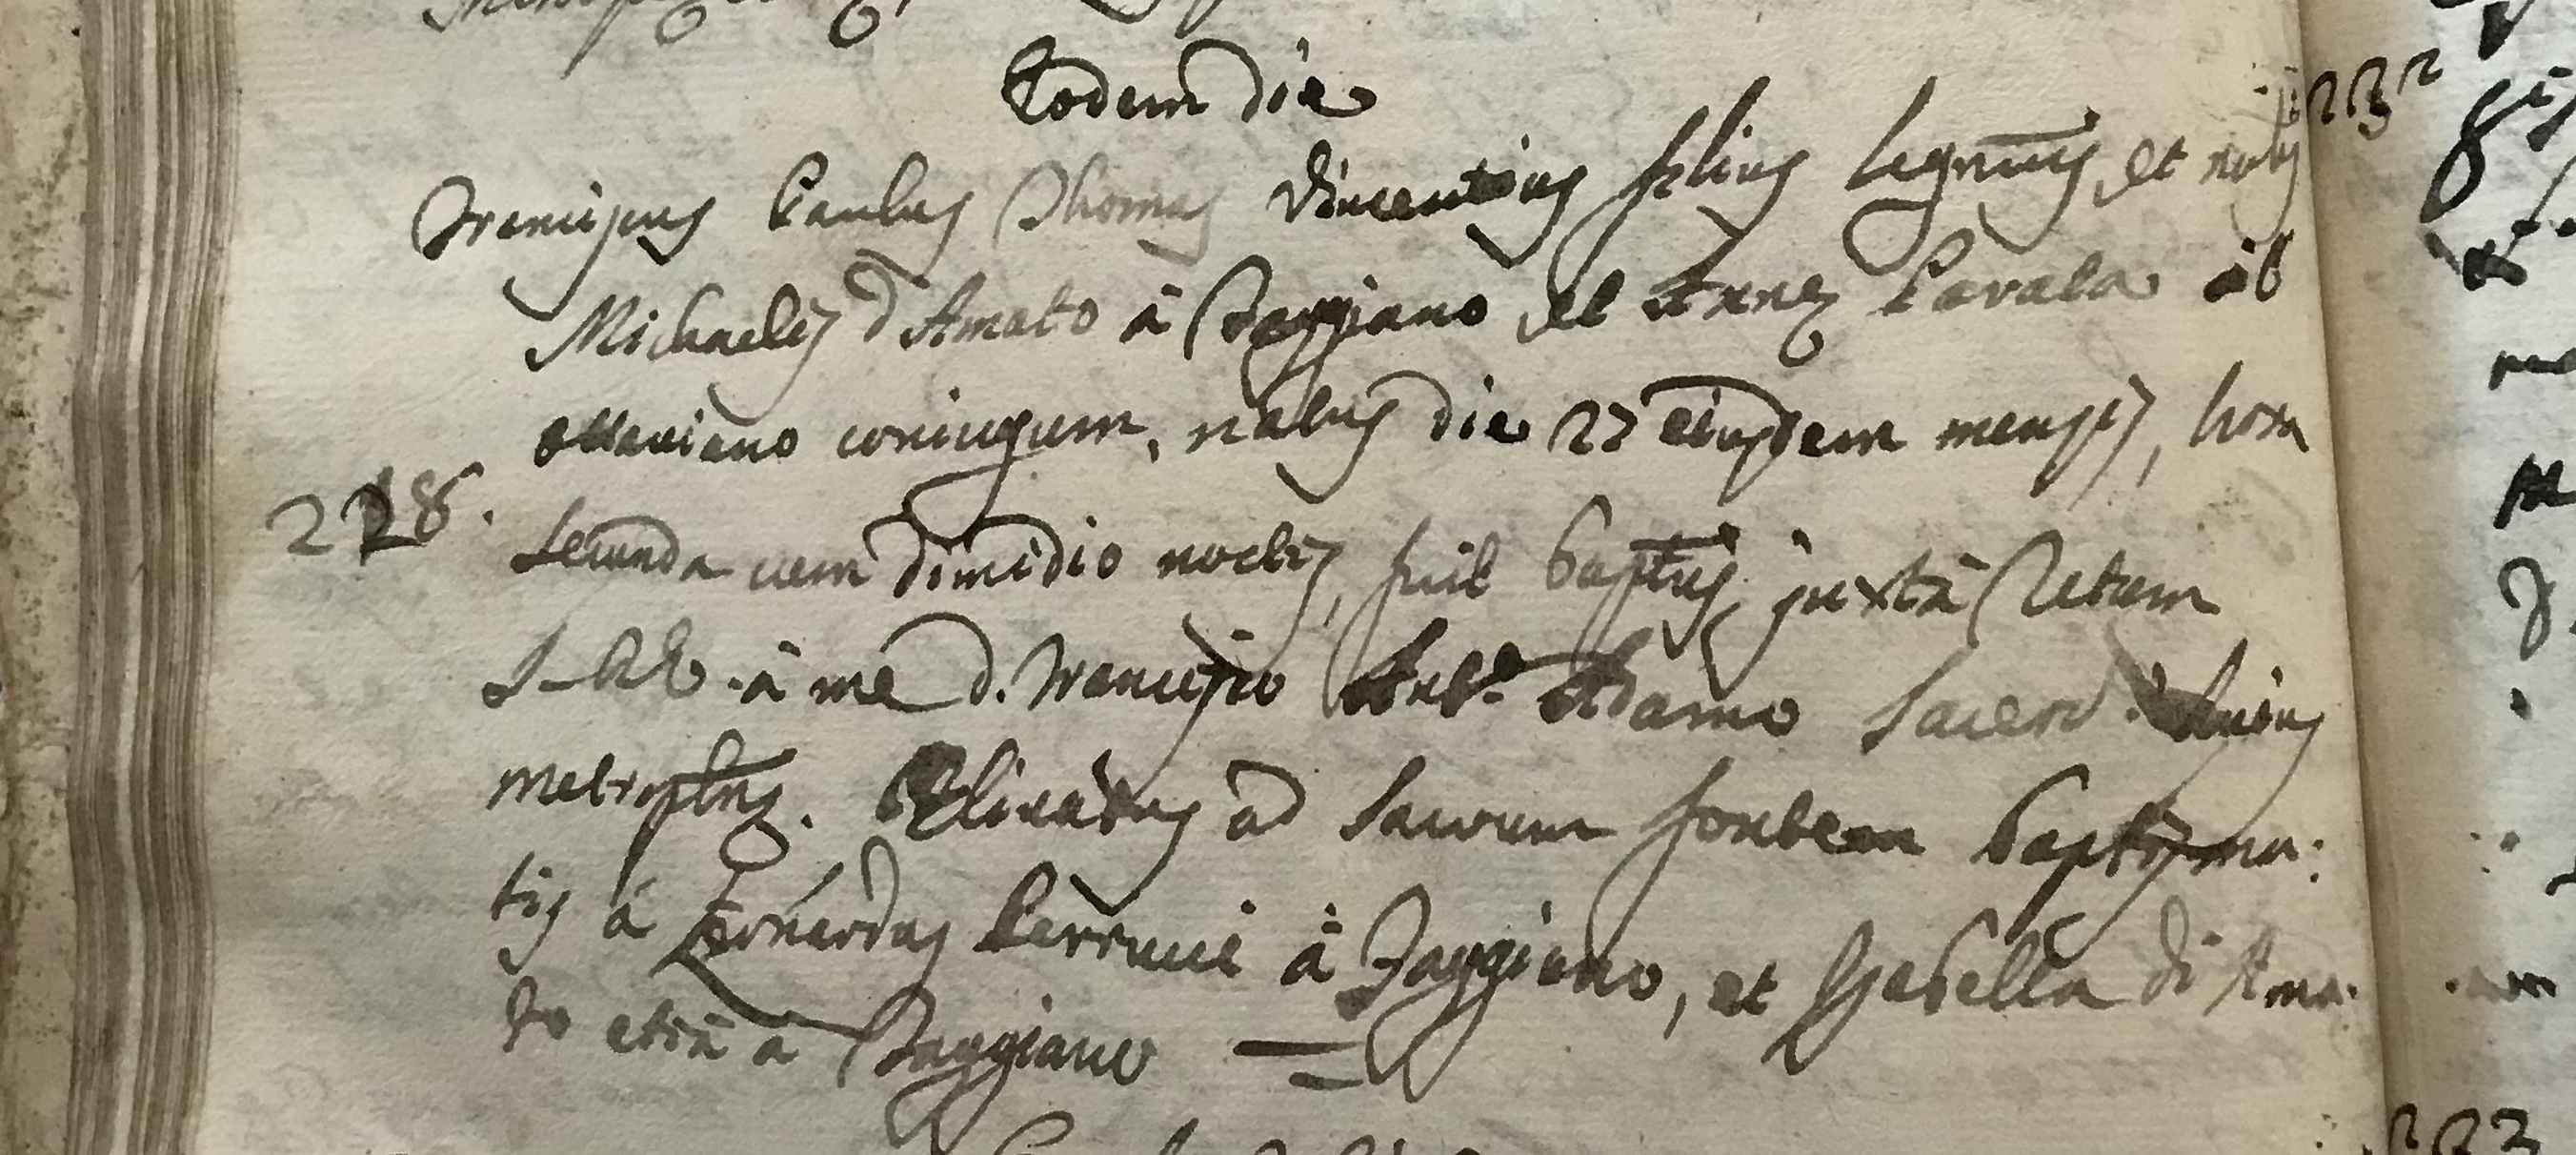 Eodem die
Franciscus Paulus Thomas Vincentius filius legmus, et nālis
Michaelis d'Amato à Faggiano et Annę Cavala ab
Ottaviano coniugum, natus die 27 eiusdem mensis, hora
228.
secunda cum dimidio noctis, fuit bapt̄us juxtà Ritum
S. R. E. à me D. Francisco Ant.o Adamo Sacerd. huius
metroplnę. Elivatus ad sacrum fontem baptisma:
tis à Leonardus Perrucci à Faggiano, et Isabella di Ama:
to etiā à Faggiano =